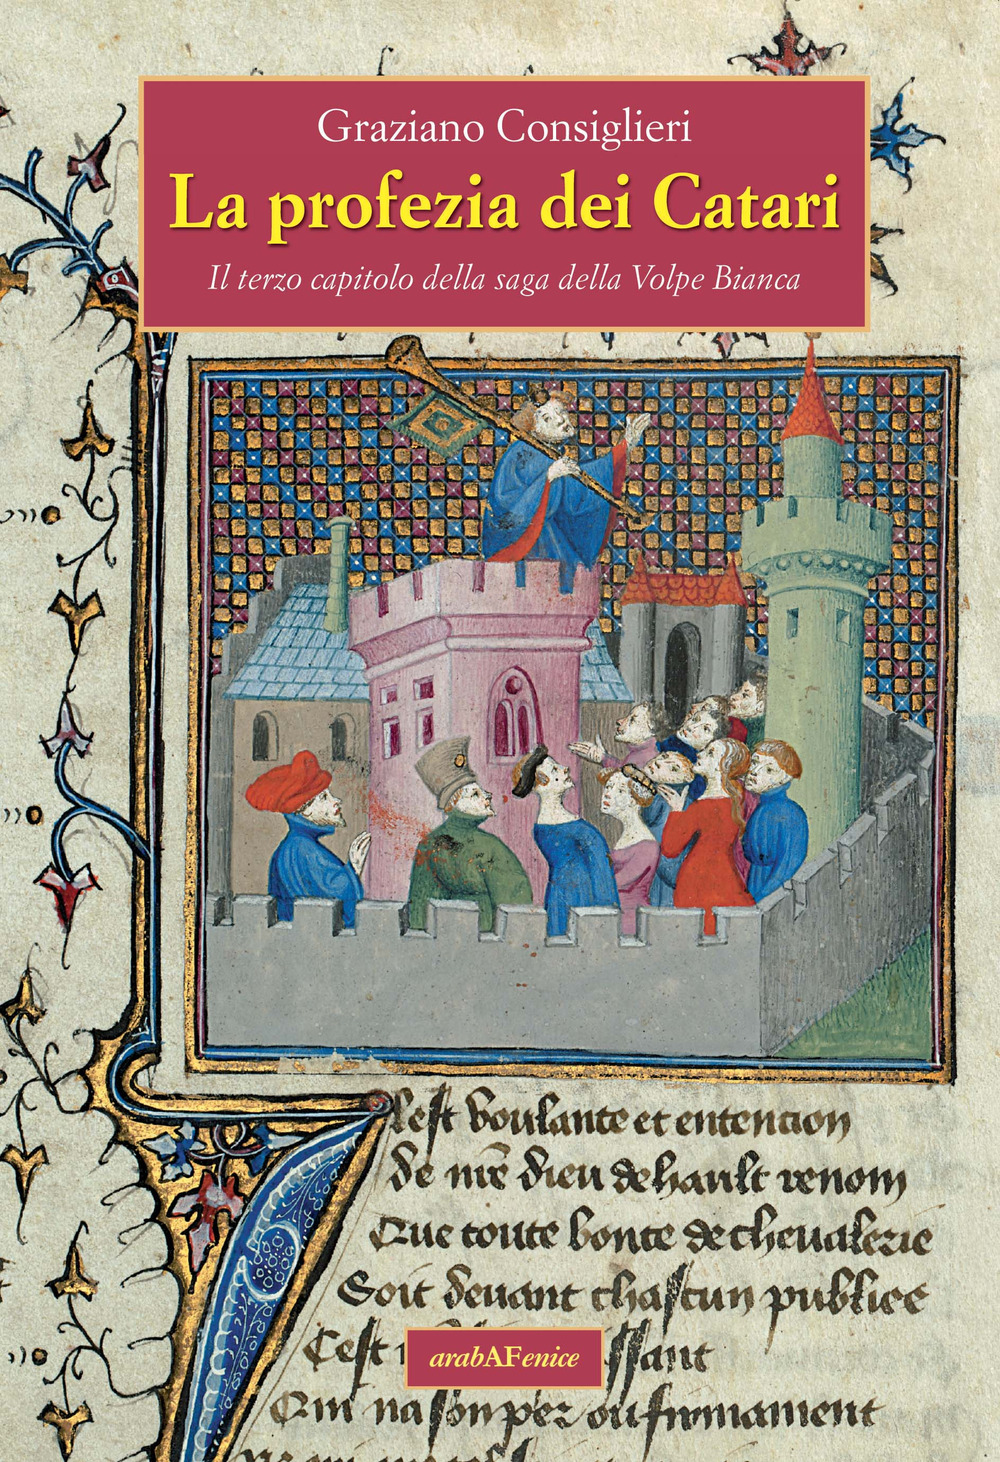 Graziano Consiglieri
La profezia dei Catari
Il terzo capitolo della saga della Volpe Bianca
lest voulante et entention
de nr̃e dieu de hault renom
Que toute bonte de cheualerie
Soit deuant chascun publiee
Cest ssant
arabAFenice
Qui na son per ou firmament